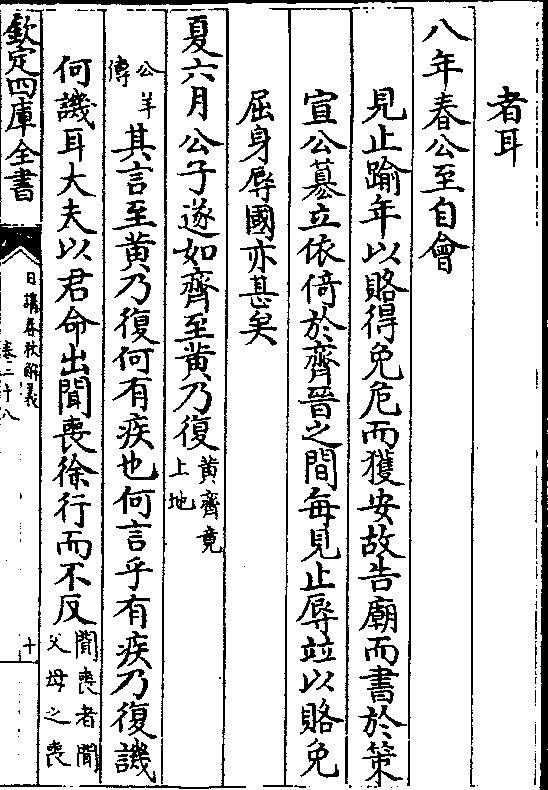 者耳
八年春公至自會
見止踰年以賂得免危而獲安故告廟而書於策
宣公簒立依倚於齊晉之間每見止辱竝以賂免
屈身辱國亦甚矣
夏六月公子遂如齊至黄乃復黄齊竟上地
公羊傳其言至黄乃復何有疾也何言乎有疾乃復譏
何譏耳大夫以君命出聞喪徐行而不反聞喪者聞父母之喪
欽定四庫全書
日講春秋解義
卷二十八
十